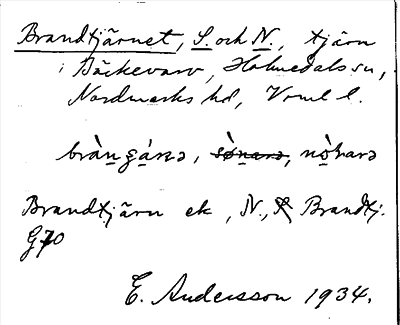 Brandtjärnet, S. och N., tjärn
i Bäckevarv, Holmedals sn,
Nordmarks hd, Vrml l.
bràngánə, sø̀narə, nòrarə
Brandtjärn ek, N., S Brandtj.
G70
E. Andersson 1934.